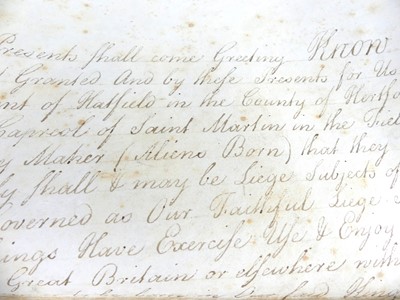 Presents shall come Greeting Know
Granted And by these Presents for Us
of Hatfield in the County of Hertfo
Caproll of Saint Martin in the Fiel
Maker (Aliens Born) that they
shall & may be Liege Subjects of
Governed as Our Faithful Liege S
ings Have Exercise Use & Enjoy
Great Britain or elsewhere with